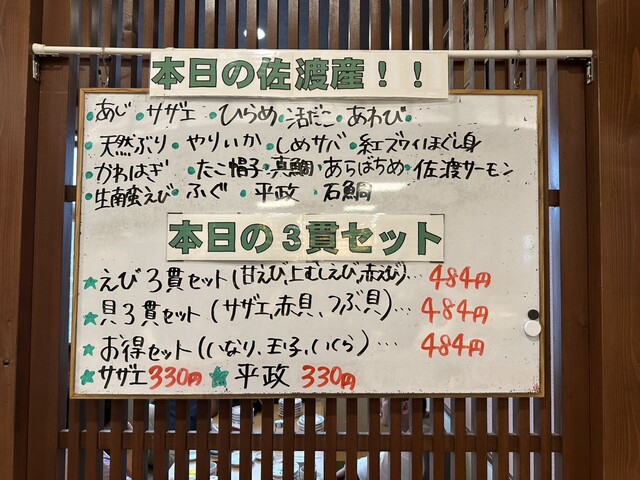 本日の佐渡産！！
•あじ •サザエ •ひらめ •活だこ •あわび•
•天然ぶり •やりいか •しめサバ •紅ズワイほぐし身
•かわはぎ •たこ帽子 •真鯛 •あらばちめ •佐渡サーモン
•生南蛮えび •ふぐ •平政 •石鯛
本日の3貫セット
★えび3貫セット(甘えび,上むしえび,赤えび)… 484円
★貝3貫セット(サザエ,赤貝,つぶ貝)… 484円
★お得セット(いなり,玉子,いくら)… 484円
★サザエ330円 ★平政 330円